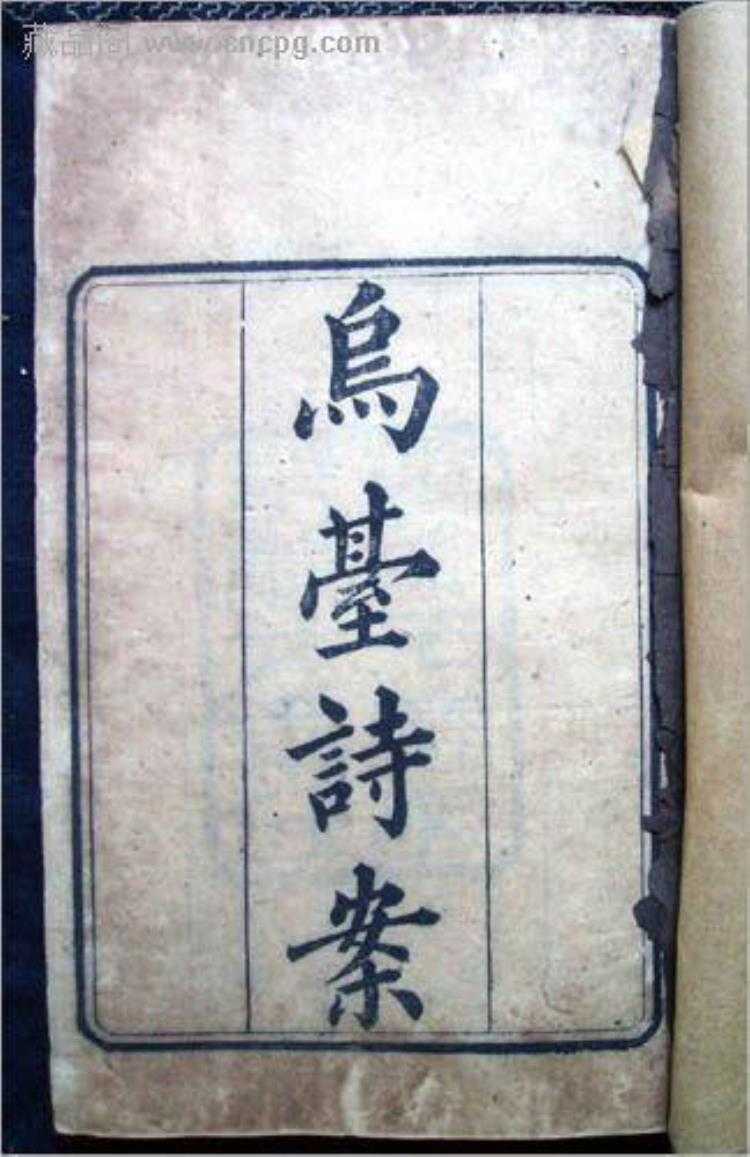 藏品阁 www.cncpg.com
烏臺詩案